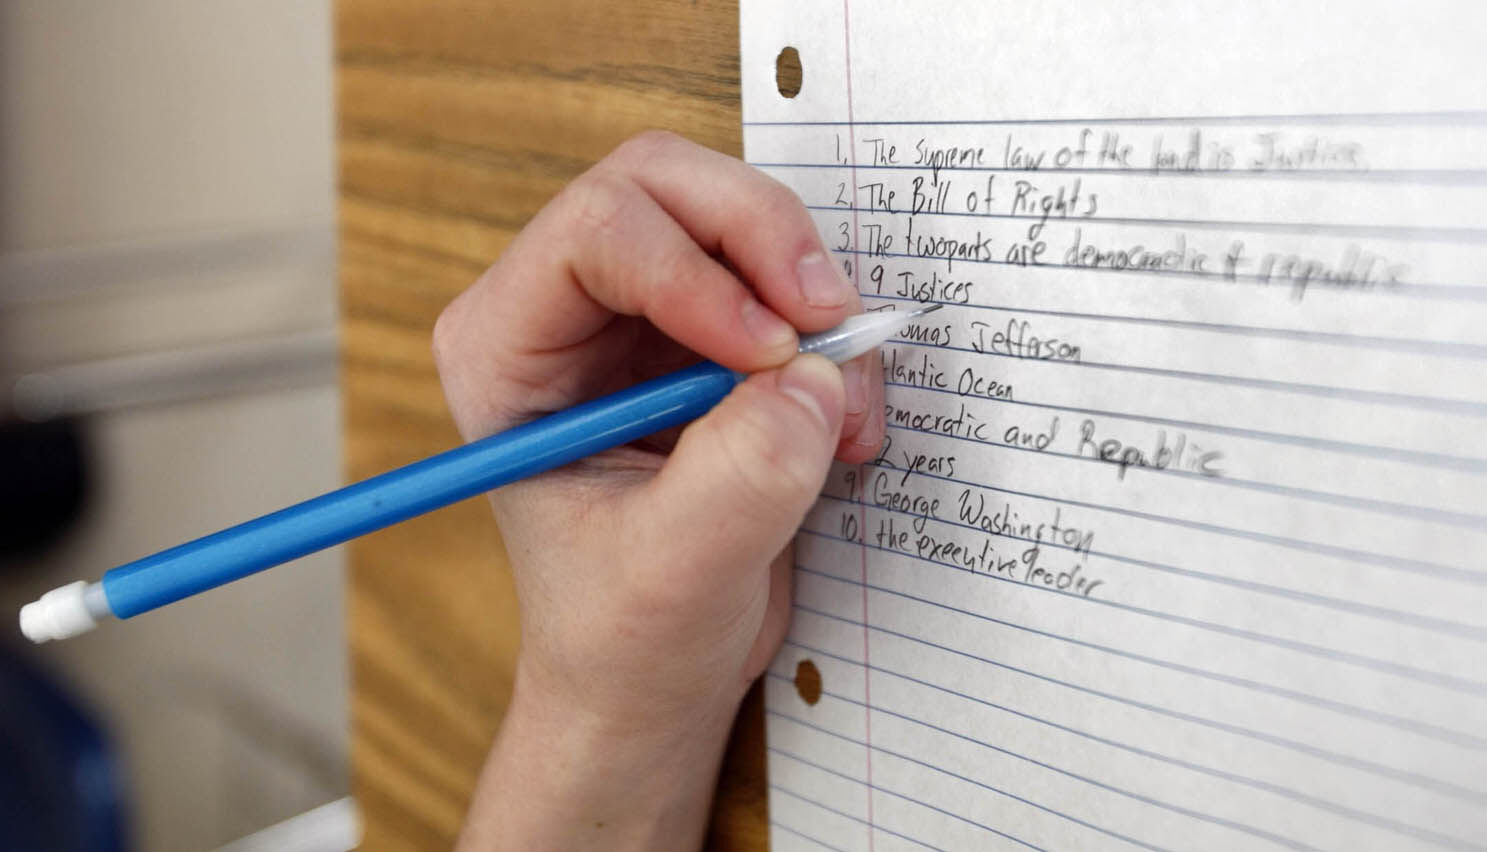 1. The Supreme law of the land is Justice
2. The Bill of Rights
3. The two parts are democratic & republic
9 Justices
omas Jefferson
lantic Ocean
emocratic and Republic
2 years
9. George Washington
10. the executive leader